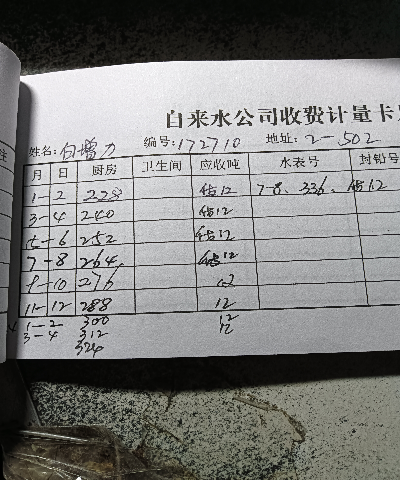 自来水公司收费计量卡
姓名:白增力 编号:172710 地址:2-502
月 日 厨房 卫生间 应收吨 水表号 封铅号
1-2 228 估12 7-8、336、估12
3-4 240 估12
5-6 252 估12
7-8 264 估12
9-10 276 12
11-12 288 12
1-2 300 12
3-4 312 12
324